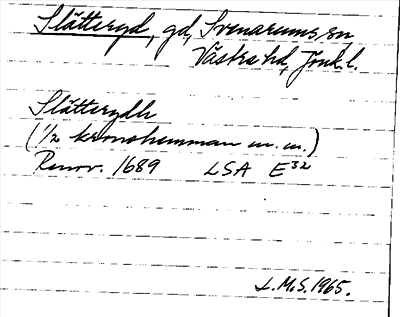 Slätteryd, gd, Svenarums sn
Västra hd, Jönk. l.
Slätterydh
(1/2 kronohemman m. m.)
Renov. 1689 LSA E32
L.M.S. 1965.